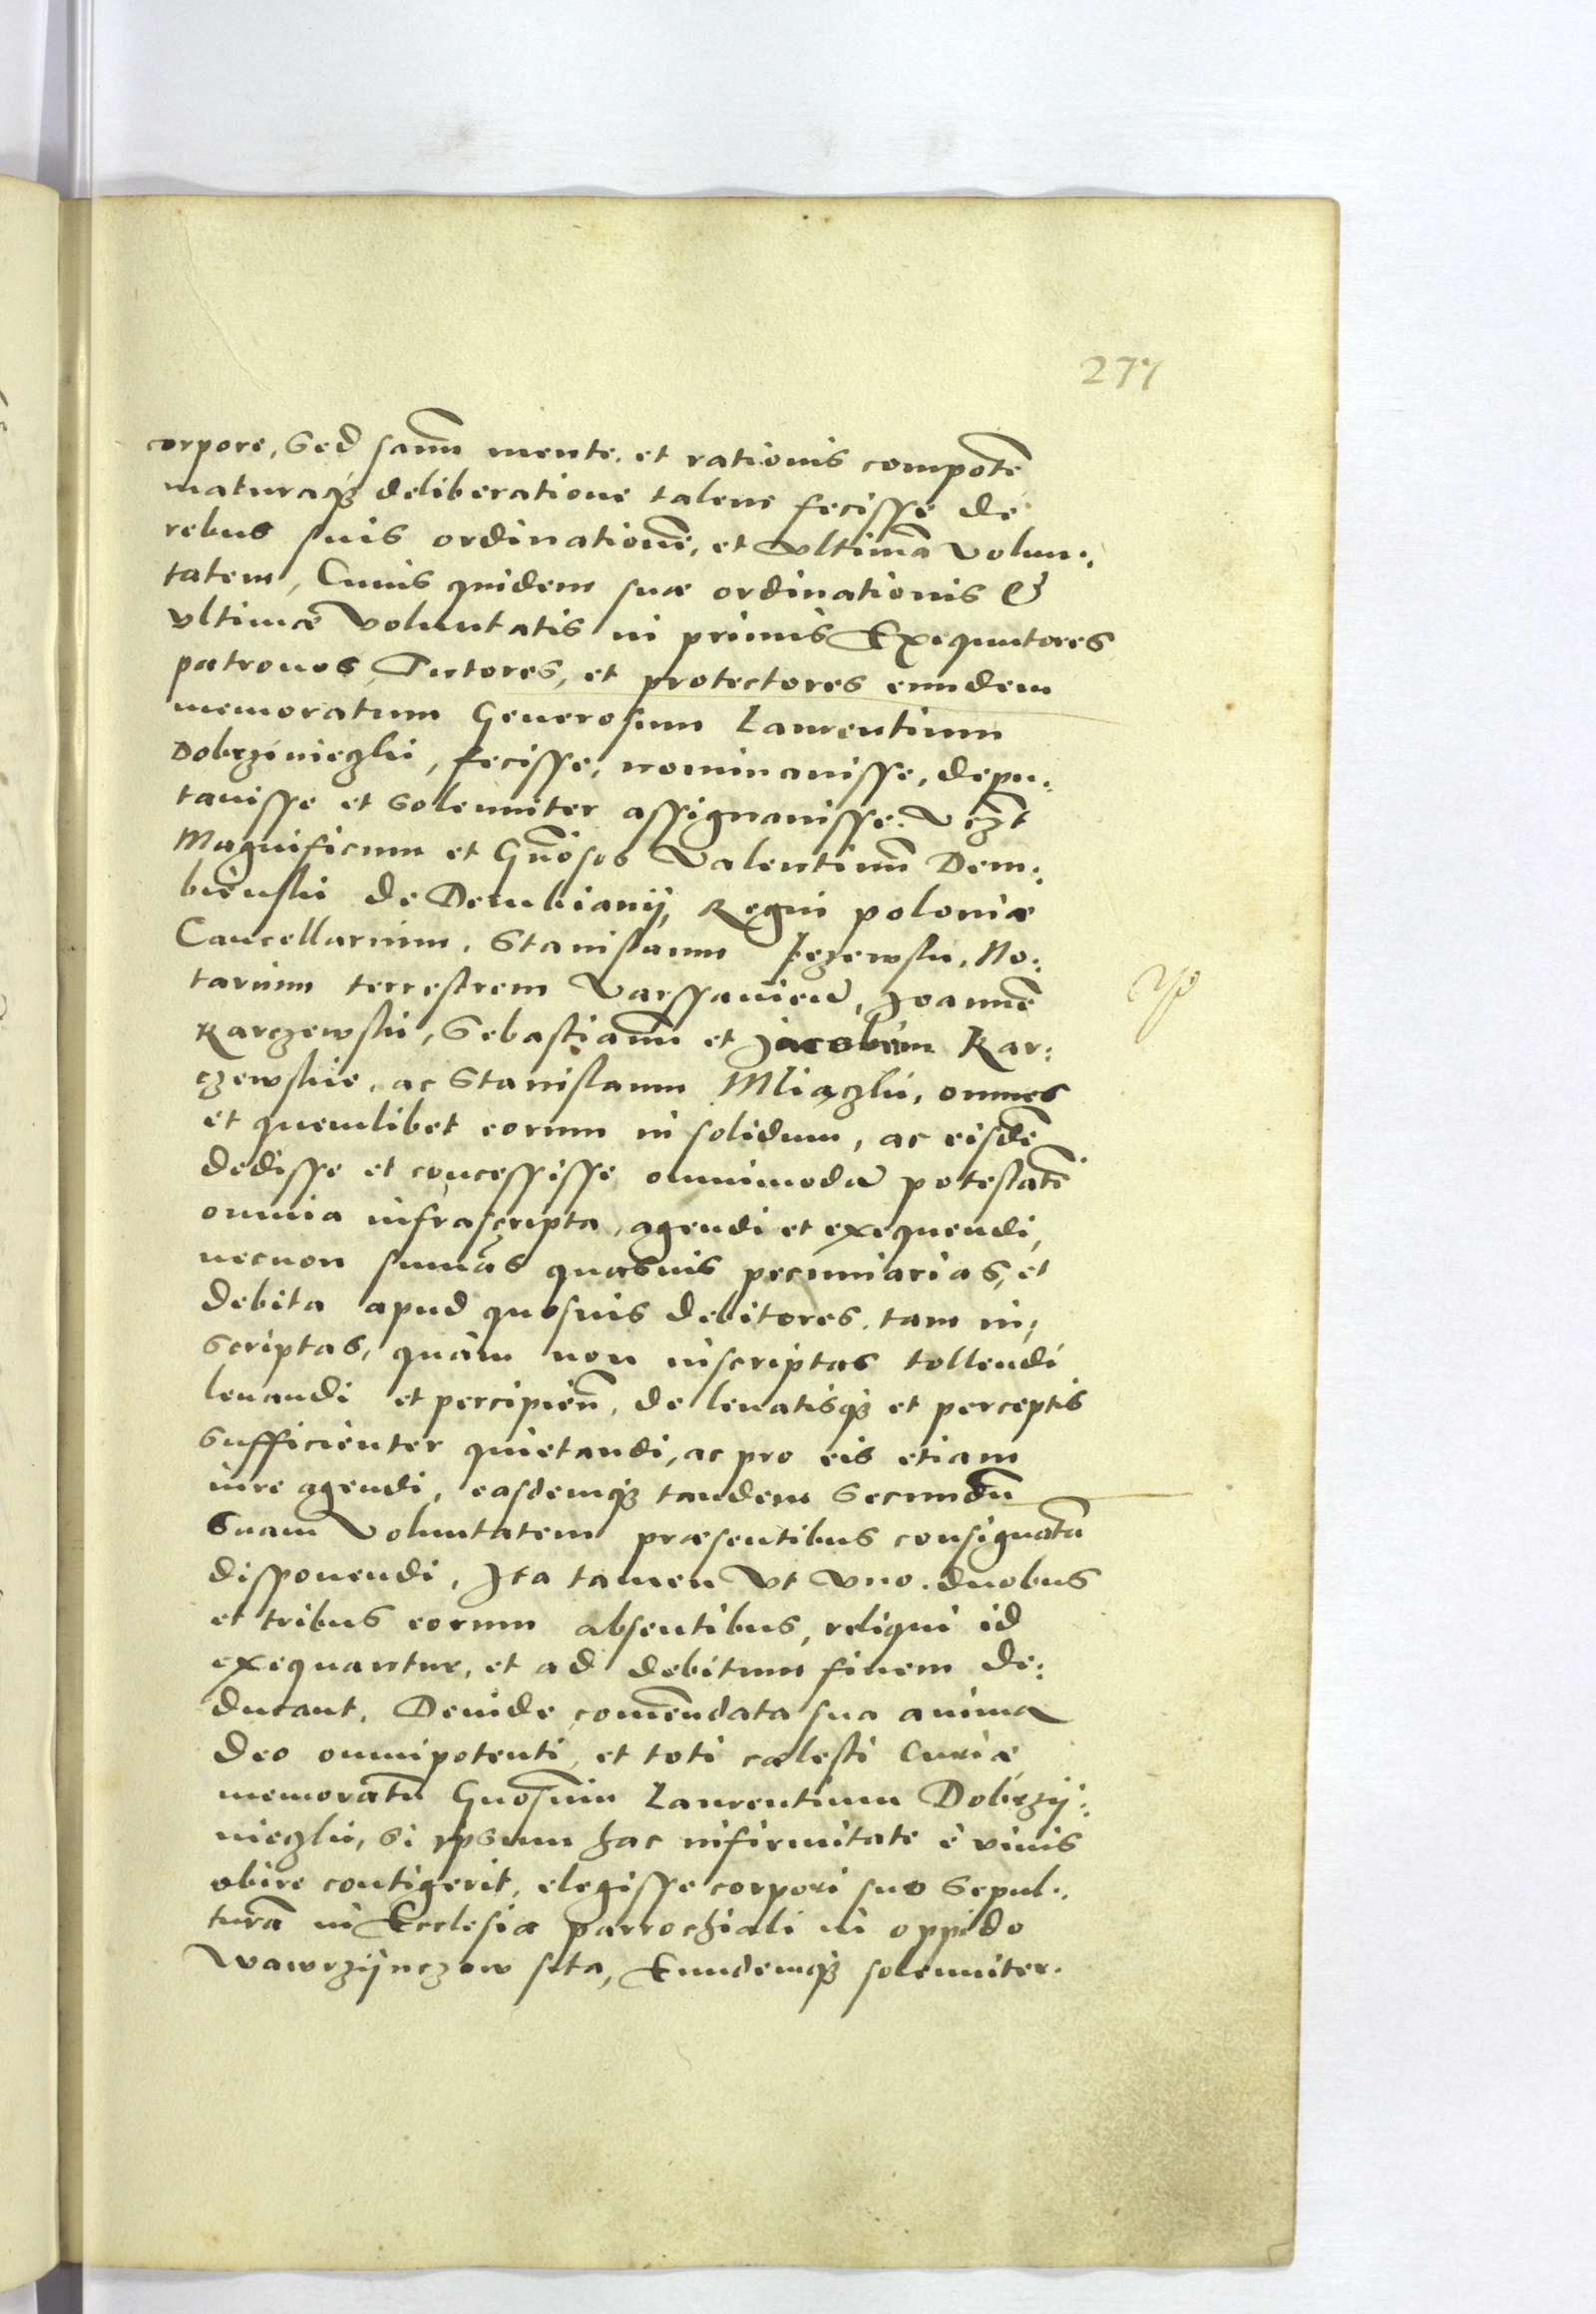 277
corpore, sed sanu mente, et rationis compotẽ
maturaq₃ deliberatione talem fecisse de
rebus suis ordinationẽ, et vltimã volun:
tatem, Cuius quidem suæ ordinationis &
vltimæ voluntatis in primis Exequutores
patronos, Tutores, et protectores eundem
memoratum Generosum Laurentium
Dobrzinieczki, fecisse, nominauisse, depu:
tauisse et solenniter assignauisse. Vczt
Magnificum et Gñosos Valentinũ Dem:
bienski de Dembianÿ, Regni poloniæ
Cancellarium, Stanislaum Jezewski, No:
tarium terrestrem Varssauień, Joannẽ
Karczewski, Sebastianũ et Jacobum Kar:
czewskie, ac Stanislaum Mliaczki, omnes
et quemlibet eorum in solidum, ac eisdẽ
dedisse et concessisse omnimodã potestatẽ
omnia infrascripta, agendi et exequendi,
necnon sum̃as quasuis pecuniarias, et
debita apud quosuis debitores, tam in:
scriptas, quàm non inscriptas tollendi
leuandi et percipieñ, de leuatisq₃ et perceptis
sufficienter quietandi, ac pro eis etiam
iure agendi, easdemq₃ tandem secundũ
suam voluntatem præsentibus consignatã
disponendi, Ita tamen vt vno, duobus
et tribus eorum absentibus, reliqui id
exequantur, et ad debitum finem de:
ducant, Deinde com̃endata sua anima
Deo omnipotenti, et toti cælesti Curiæ
memoratũ Gnosum Laurentium Dobrzÿ:
nieczki, si ipsum hac infirmitate è viuis
obire contigerit, elegisse corpori suo sepul:
turã in Ecclesia parrochiali in oppido
Wawrzÿnczow sita, Eundemq₃ solenniter.